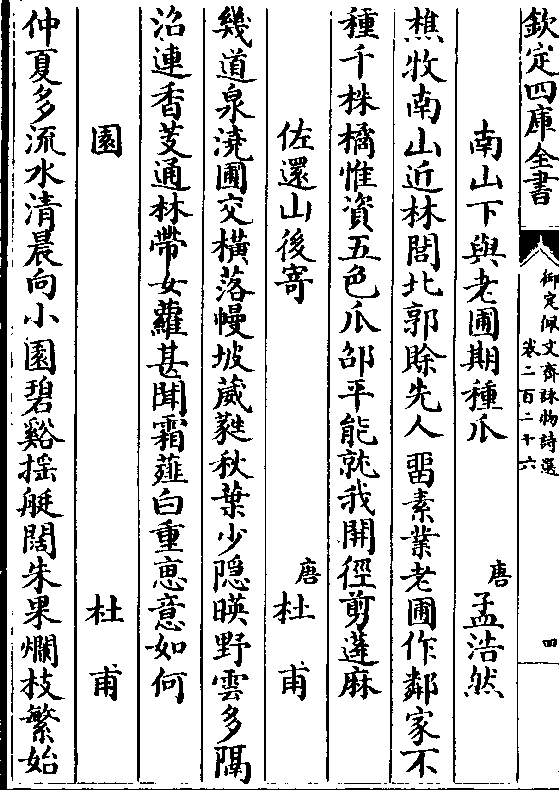 欽定四庫全書
御定佩文齋詠物詩選
卷二百二十六
四
南山下與老圃期種瓜
唐孟浩然
樵牧南山近林閭北郭賒先人留素業老圃作鄰家不
種千株橘惟資五色瓜邵平能就我開徑剪蓬麻
佐還山後寄
唐杜甫
幾道泉澆圃交橫落幔坡葳蕤秋葉少隱暎野雲多隔
沼連香芰通林帶女蘿甚聞霜薤白重恵意如何
園
杜甫
仲夏多流水清晨向小園碧谿揺艇闊朱果爛枝繁始